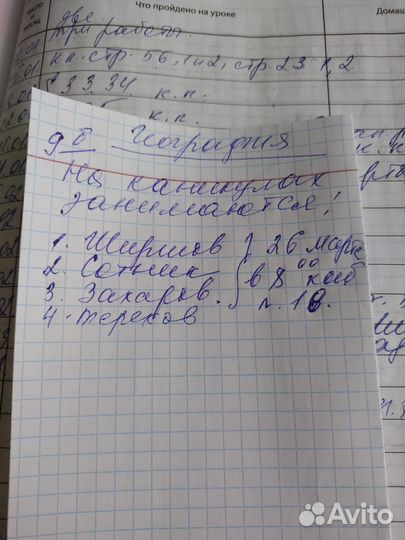 Что пройдено на уроке
Дома
две
три работы.
к.к. стр. 56, 1 и 2, стр. 23 1, 2
33 34. к.п.
к.п.
9 б География
На каникулах
занимаются!
1. Ширшов } 26 марта
2. Сотник } в 8 00 каб
3. Захаров. } п. 10.
4. Терехов
Avito